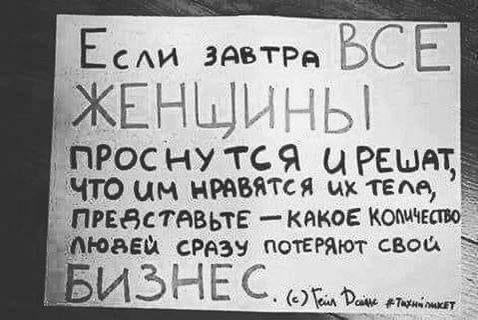 Если завтра ВСЕ
ЖЕНЩИНЫ
проснутся и решат,
что им нравятся их тела,
представьте — какое количество
людей сразу потеряют свой
БИЗНЕС. (с) Гейл Дайнс #Тихийпикет